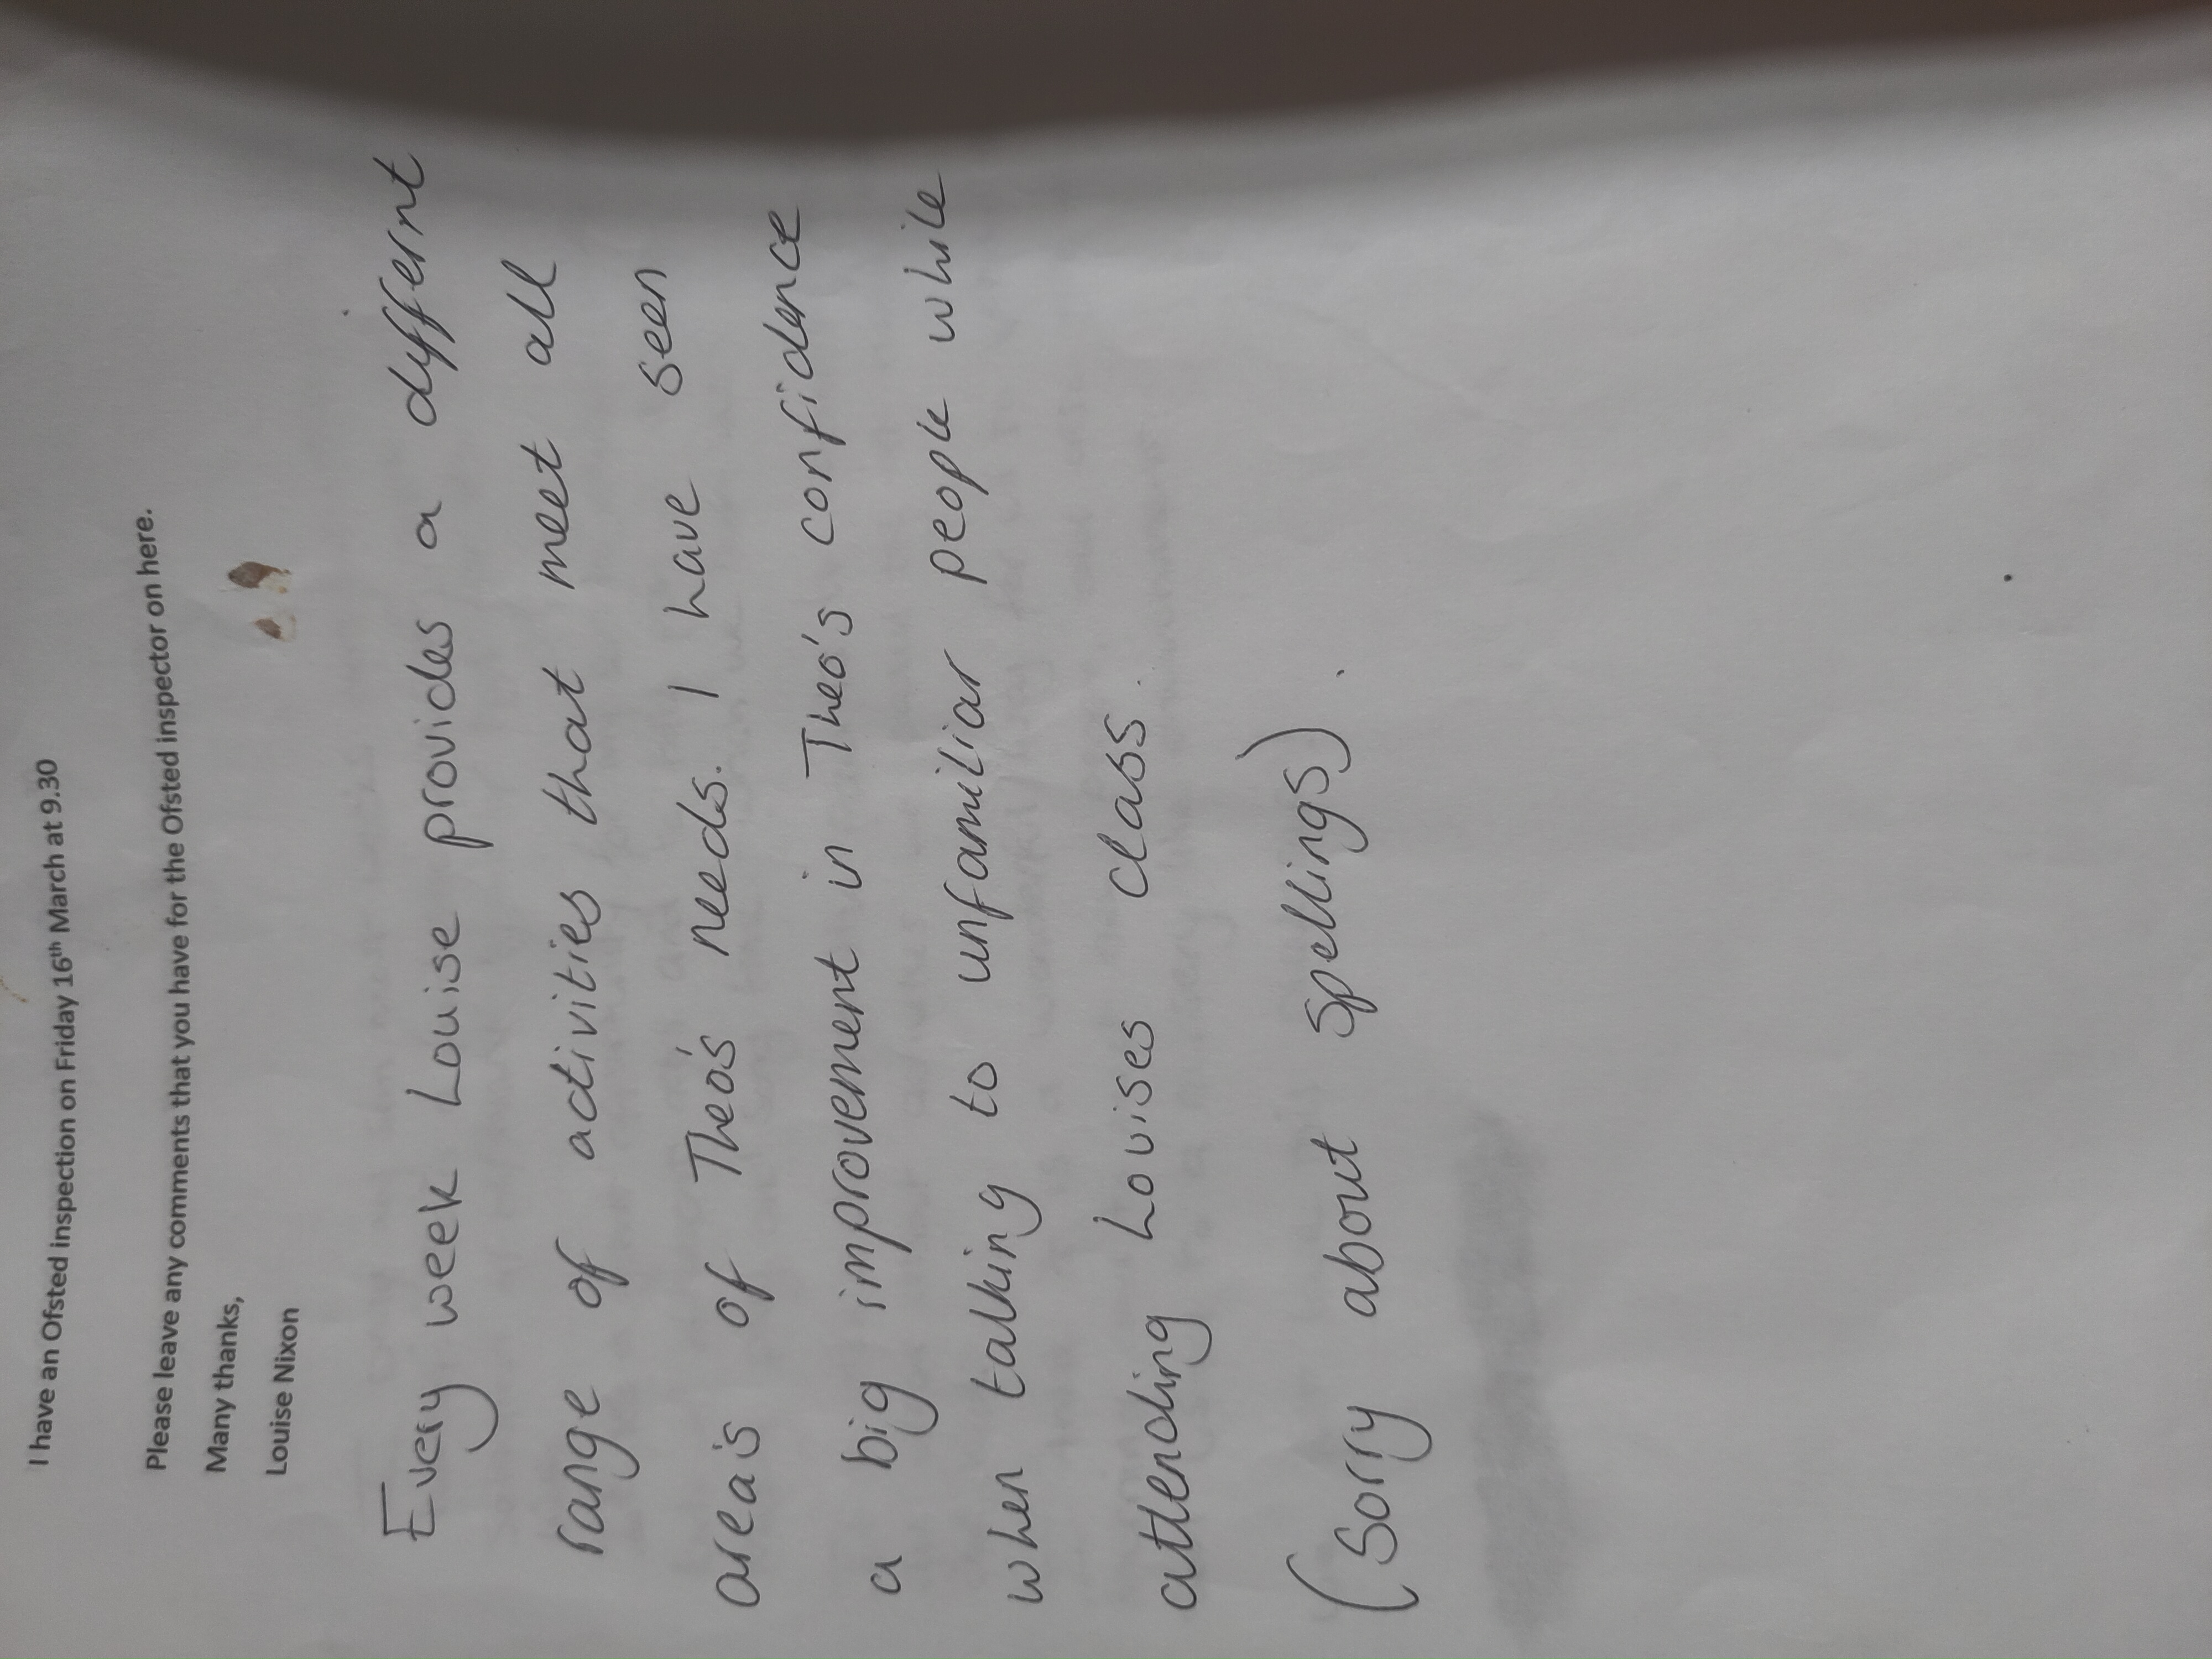 I have an Ofsted inspection on Friday 16th March at 9.30
Please leave any comments that you have for the Ofsted inspector on here.
Many thanks,
Louise Nixon
Every week Louise provides a differnt
range of activities that meet all
area's of Theo's needs. I have seen
a big improvement in Theo's confidence
when talking to unfamiliar people while
attending Louises class.
(Sorry about spellings).